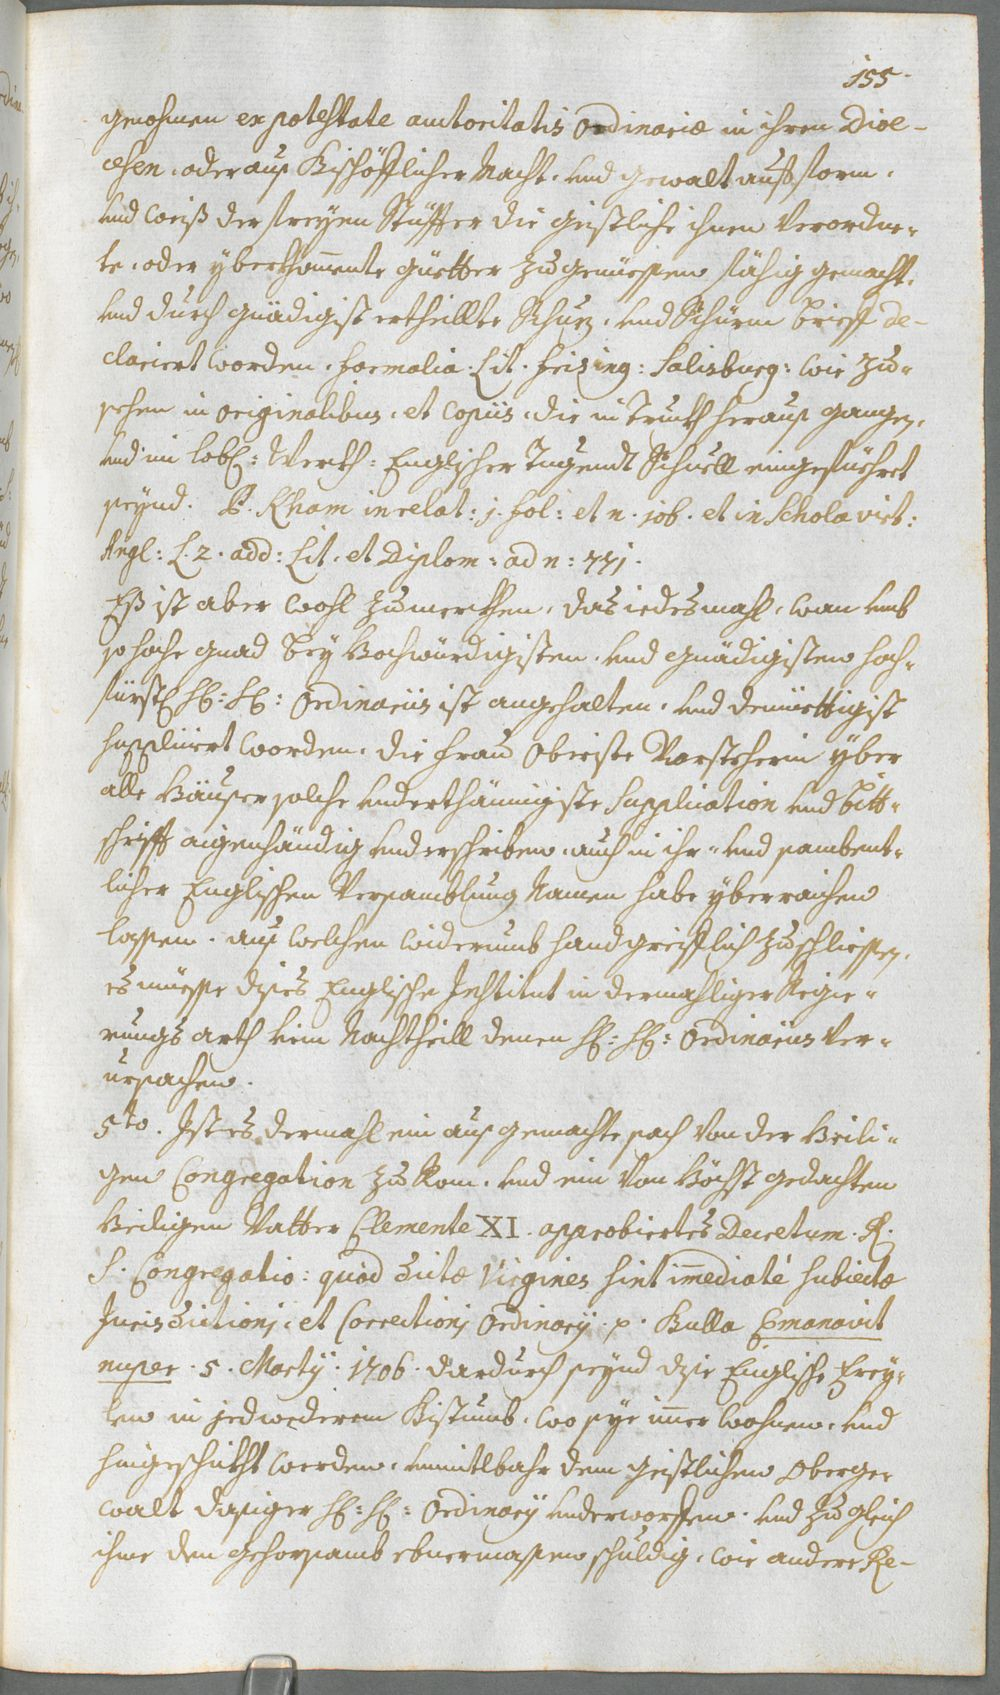 155.
genohmen ex potestate autoritatis Ordinariæ in ihren Dioe-
cesen, oder auß Bischöfflicher Macht, und gewalt auf form,
und weiß der freyen Stüffter die geistliche ihnen verordne-
te, oder yberkhommente güetter zu genüessen fähig gemacht,
und durch gnädigist ertheillte Schuz, und Schürm brieff de-
clariert worden. formalia Lit. freising: Salisburg: wie zu-
sehen in originalibus, et Copiis, die in Truckh herauß gangen,
und im lobl: Werth: Englischer Tugendt Schuell eingeführet
seynd. P. Kham in relat: j. fol: et n. job. et in Schola virt:
Angl: L. 2. add: Lit. et Diplom: ad n: 771.
Eß ist aber wohl zu merckhen, das iedesmahl, wan umb
so hohe gnad bey Hochwürdigisten, und gnädigisten hoch-
fürstl: H: H: Ordinariis ist angehalten, und demüettigist
suppliiert worden, die Frau Obriste Vorsteherin yber
alle Häuser solche underthännigiste Supplication und bitt-
schrifft aigenhändig underschriben, auch in ihr- und sambent-
licher Englischen Versamblung Namen habe yberraichen
lassen. auß welchen widerumb handgreifflich zu schliessen,
es müesse dises Englische Institut in dermahliger Regie-
rungs arth kein Nachtheill denen H: H: Ordinariis ver-
ursachen.
5to. Ist es dermahl ein außgemachte sach von der Heili-
gen Congregation zu Rom, und ein von Höchst gedachten
Heiligen Vatter Clemente XI. approbiertes Decretum. R.
S. Congregatio: quòd dictæ Virgines sint immediatè subiectæ
Jurisdictioni, et Correctioni Ordinarij. p. Bulla Emanavit
nuper. 5. Martij. 1706. dardurch seynd dise Englische Frey-
len in jedwederem Bistumb, wo sye immer wohnen, und
hingeschickht werden, unmitlbahr dem geistlichen oberge-
walt dasiger H: H: Ordinarij underworffen, und zugleich
ihme den gehorsamb ebnermassen schuldig, wie andere Re-